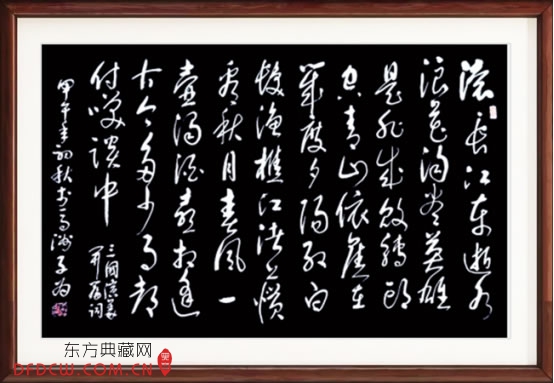 滚长江东逝水
浪花淘尽英雄
是非成败转头
空青山依旧在
几度夕阳红白
发渔樵江渚上惯
看秋月春风一
壶浊酒喜相逢
古今多少事都
付笑谈中
三国演义
开篇词
甲午年初秋于
东方典藏网
DFDCW.COM.CN